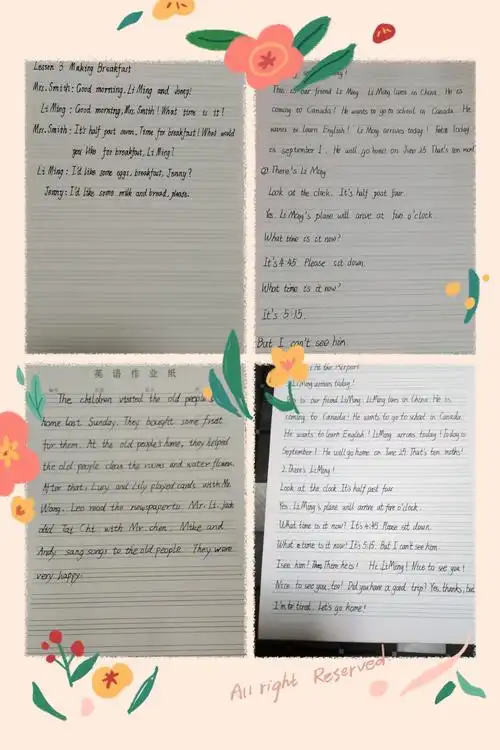 Lesson 3 Making Breakfast
Mrs. Smith: Good morning, Li Ming and Jenny!
Li Ming: Good morning, Mrs. Smith! What time is it!
Mrs. Smith: It's half past seven. Time for breakfast! What would
you like for breakfast, Li Ming?
Li Ming: I'd like some eggs, breakfast, Jenny?
Jenny: I'd like some milk and bread, please.
This is our friend Li Ming Li Ming lives in China. He is
coming to Canada! He wants to go to school in Canada. He
wants to learn English! Li Ming arrives today! Today
is september 1. He will go home on June 25 That's ten
② There's Li Ming
Look at the clock. It's half past four.
Yes. Li Ming's plane will arrive at five o'clock.
What time is it now?
It's 4:45 Please sit down.
What time is it now?
It's 5:15.
But I can't see him.
英语作业纸
The children visited the old people
home last Sunday. They bought some fruit
for them. At the old people's home, they helped
the old people clean the rooms and water flowers.
After that, Lucy and Lily played cards with Mr.
Wang. Leo read the newspaper to Mr. Li. Jack
did Tai Chi with Mr. chen. Mike and
Andy sang songs to the old people They were
very happy.
At the Airport
Li Ming arrives today!
is our friend Li Ming. Li Ming lives in China. He is
coming to Canada! He wants to go to school in Canada.
He wants to learn English! Li Ming arrives today! Today is
September 1. He will go home on June 25 That's ten
2. There's Li Ming!
Look at the clock. It's half past four
Yes. Li Ming's plane will arrive at five o'clock.
What time is it now? It's 4:45 Please sit down.
What time is it now? It's 5:15. But I can't see him.
I see him! There he is! Hi, Li Ming! Nice to see you!
Nice to see you, too! Did you have a good trip? Yes, thanks, but
I'm tired. Let's go home!
All right Reserved